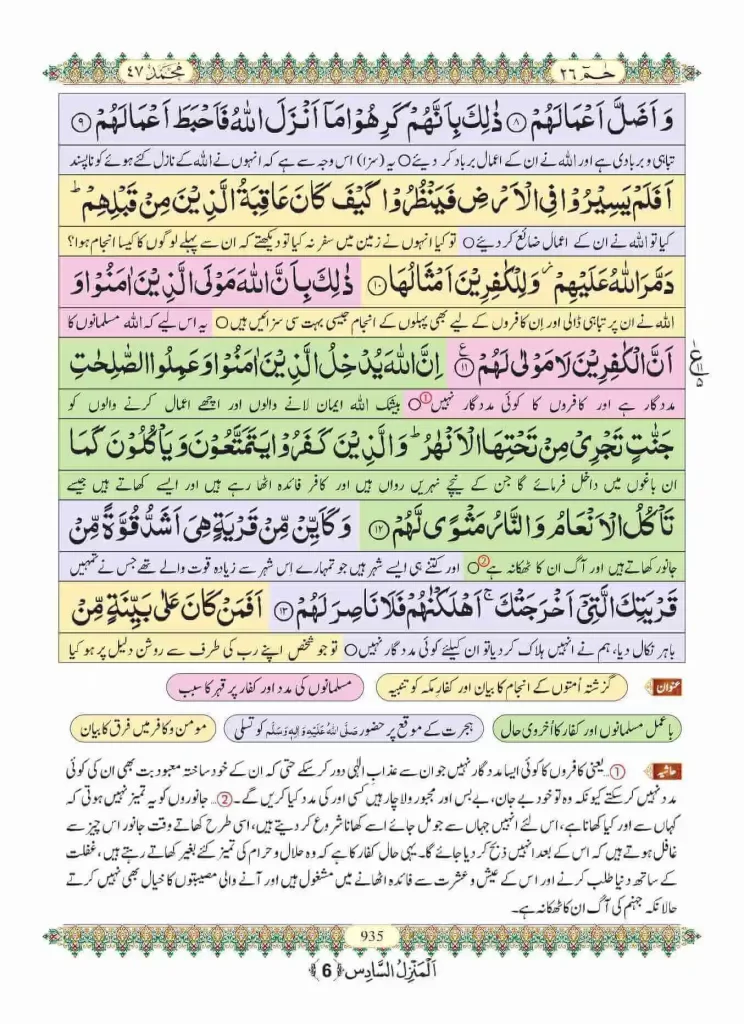 حٰمٓ ٢٦
مُحَمَّد ٤٧
وَ اَضَلَّ اَعْمَالَهُمْ ﴿٨﴾ ذٰلِكَ بِاَنَّهُمْ كَرِهُوْا مَاۤ اَنْزَلَ اللّٰهُ فَاَحْبَطَ اَعْمَالَهُمْ ﴿٩﴾
تباہی و بربادی ہے اور اللہ نے ان کے اعمال برباد کر دیئے ○ یہ (سزا) اس وجہ سے ہے کہ انہوں نے اللہ کے نازل کئے ہوئے کو ناپسند
اَفَلَمْ یَسِیْرُوْا فِی الْاَرْضِ فَیَنْظُرُوْا كَیْفَ كَانَ عَاقِبَةُ الَّذِیْنَ مِنْ قَبْلِهِمْ ؕ
کیا تو اللہ نے ان کے اعمال ضائع کر دیئے ○ تو کیا انہوں نے زمین میں سفر نہ کیا تو دیکھتے کہ ان سے پہلے لوگوں کا کیسا انجام ہوا؟
دَمَّرَ اللّٰهُ عَلَیْهِمْ ؗ وَ لِلْكٰفِرِیْنَ اَمْثَالُهَا ﴿١٠﴾ ذٰلِكَ بِاَنَّ اللّٰهَ مَوْلَی الَّذِیْنَ اٰمَنُوْا وَ
اللہ نے ان پر تباہی ڈالی اور اِن کافروں کے لیے بھی پہلوں کے انجام جیسی بہت سی سزائیں ہیں ○ یہ اس لیے کہ اللہ مسلمانوں کا
اَنَّ الْكٰفِرِیْنَ لَا مَوْلٰی لَهُمْ ﴿١١﴾ ع اِنَّ اللّٰهَ یُدْخِلُ الَّذِیْنَ اٰمَنُوْا وَ عَمِلُوا الصّٰلِحٰتِ
مددگار ہے اور کافروں کا کوئی مددگار نہیں ① ○ بیشک اللہ ایمان لانے والوں اور اچھے اعمال کرنے والوں کو
جَنّٰتٍ تَجْرِیْ مِنْ تَحْتِهَا الْاَنْهٰرُ ؕ وَ الَّذِیْنَ كَفَرُوْا یَتَمَتَّعُوْنَ وَ یَاْكُلُوْنَ كَمَا
ان باغوں میں داخل فرمائے گا جن کے نیچے نہریں رواں ہیں اور کافر فائدہ اٹھا رہے ہیں اور ایسے کھاتے ہیں جیسے
تَاْكُلُ الْاَنْعَامُ وَ النَّارُ مَثْوًی لَّهُمْ ﴿١٢﴾ وَ كَاَیِّنْ مِّنْ قَرْیَةٍ هِیَ اَشَدُّ قُوَّةً مِّنْ
جانور کھاتے ہیں اور آگ ان کا ٹھکانہ ہے ② ○ اور کتنے ہی ایسے شہر ہیں جو تمہارے اِس شہر سے زیادہ قوت والے تھے جس نے تمہیں
قَرْیَتِكَ الَّتِیْۤ اَخْرَجَتْكَ ۚ اَهْلَكْنٰهُمْ فَلَا نَاصِرَ لَهُمْ ﴿١٣﴾ اَفَمَنْ كَانَ عَلٰی بَیِّنَةٍ مِّنْ
باہر نکال دیا، ہم نے انہیں ہلاک کر دیا تو ان کیلئے کوئی مددگار نہیں ○ تو جو شخص اپنے رب کی طرف سے روشن دلیل پر ہو کیا
عنوان گزشتہ اُمتوں کے انجام کا بیان اور کفارِ مکہ کو تنبیہ مسلمانوں کی مدد اور کفار پر قہر کا سبب
باعمل مسلمانوں اور کفار کا اُخروی حال ہجرت کے موقع پر حضور صَلَّی اللہُ عَلَیْہِ وَاٰلِہٖ وَسَلَّم کو تسلی مومن و کافر میں فرق کا بیان
حاشیہ ①... یعنی کافروں کا کوئی ایسا مددگار نہیں جو ان سے عذابِ الٰہی دور کر سکے حتی کہ ان کے خود ساختہ معبود بت بھی ان کی کوئی
مدد نہیں کر سکتے کیونکہ وہ تو خود بے جان، بے بس اور مجبور ولاچار ہیں کسی اور کی مدد کیا کریں گے۔ ②... جانوروں کو یہ تمیز نہیں ہوتی کہ
کہاں سے اور کیا کھانا ہے، اس لئے انہیں جہاں سے جو مل جائے اسے کھانا شروع کر دیتے ہیں، اسی طرح کھاتے وقت جانور اس چیز سے
غافل ہوتے ہیں کہ اس کے بعد انہیں ذبح کر دیا جائے گا۔ یہی حال کفار کا ہے کہ وہ حلال و حرام کی تمیز کئے بغیر کھاتے رہتے ہیں، غفلت
کے ساتھ دنیا طلب کرنے اور اس کے عیش و عشرت سے فائدہ اٹھانے میں مشغول ہیں اور آنے والی مصیبتوں کا خیال بھی نہیں کرتے
حالانکہ جہنم کی آگ ان کا ٹھکانہ ہے۔
935
اَلْمَنْزِلُ السَّادِس ﴿6﴾